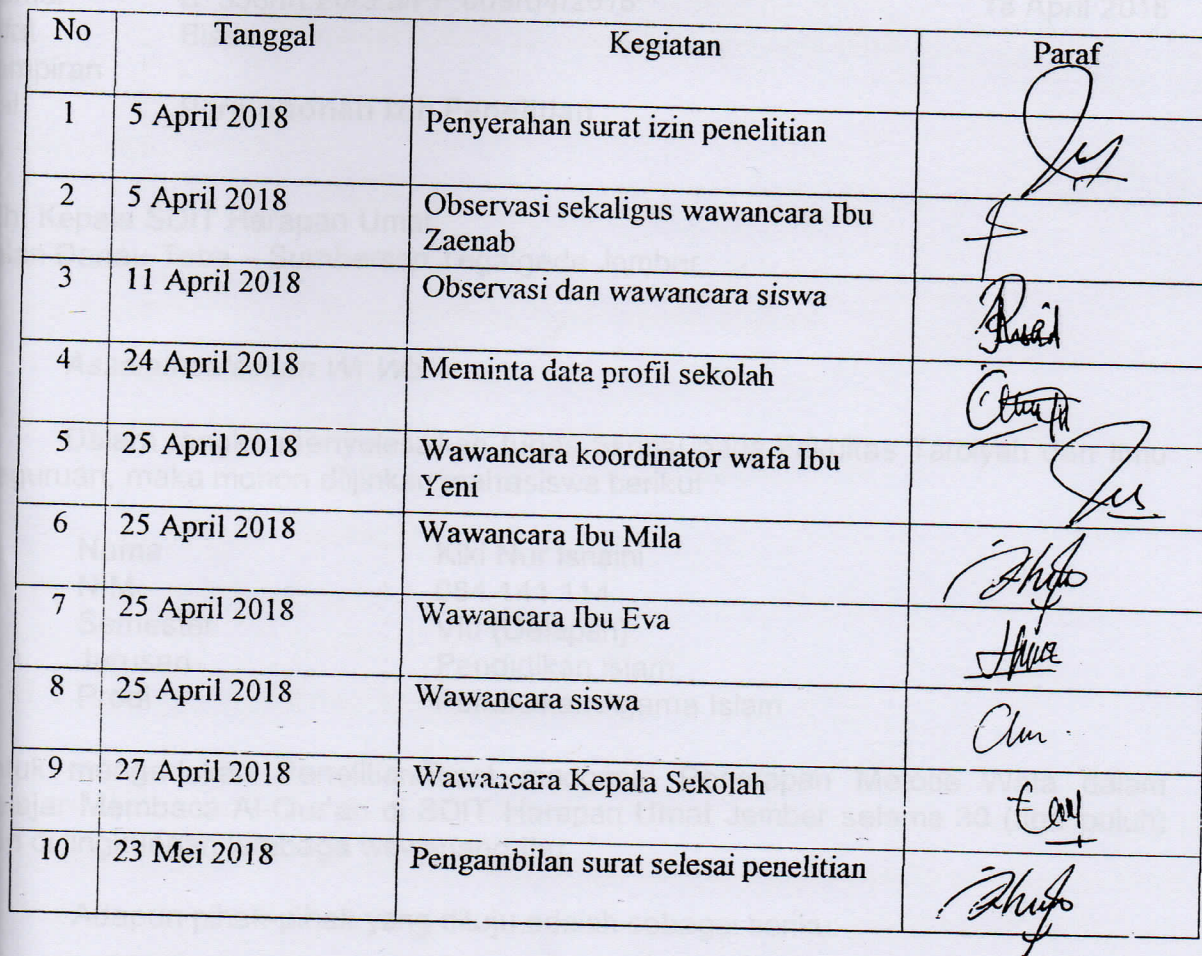 No Tanggal Kegiatan Paraf
1 5 April 2018 Penyerahan surat izin penelitian
2 5 April 2018 Observasi sekaligus wawancara Ibu
Zaenab
3 11 April 2018 Observasi dan wawancara siswa
4 24 April 2018 Meminta data profil sekolah
5 25 April 2018 Wawancara koordinator wafa Ibu
Yeni
6 25 April 2018 Wawancara Ibu Mila
7 25 April 2018 Wawancara Ibu Eva
8 25 April 2018 Wawancara siswa
9 27 April 2018 Wawancara Kepala Sekolah
10 23 Mei 2018 Pengambilan surat selesai penelitian